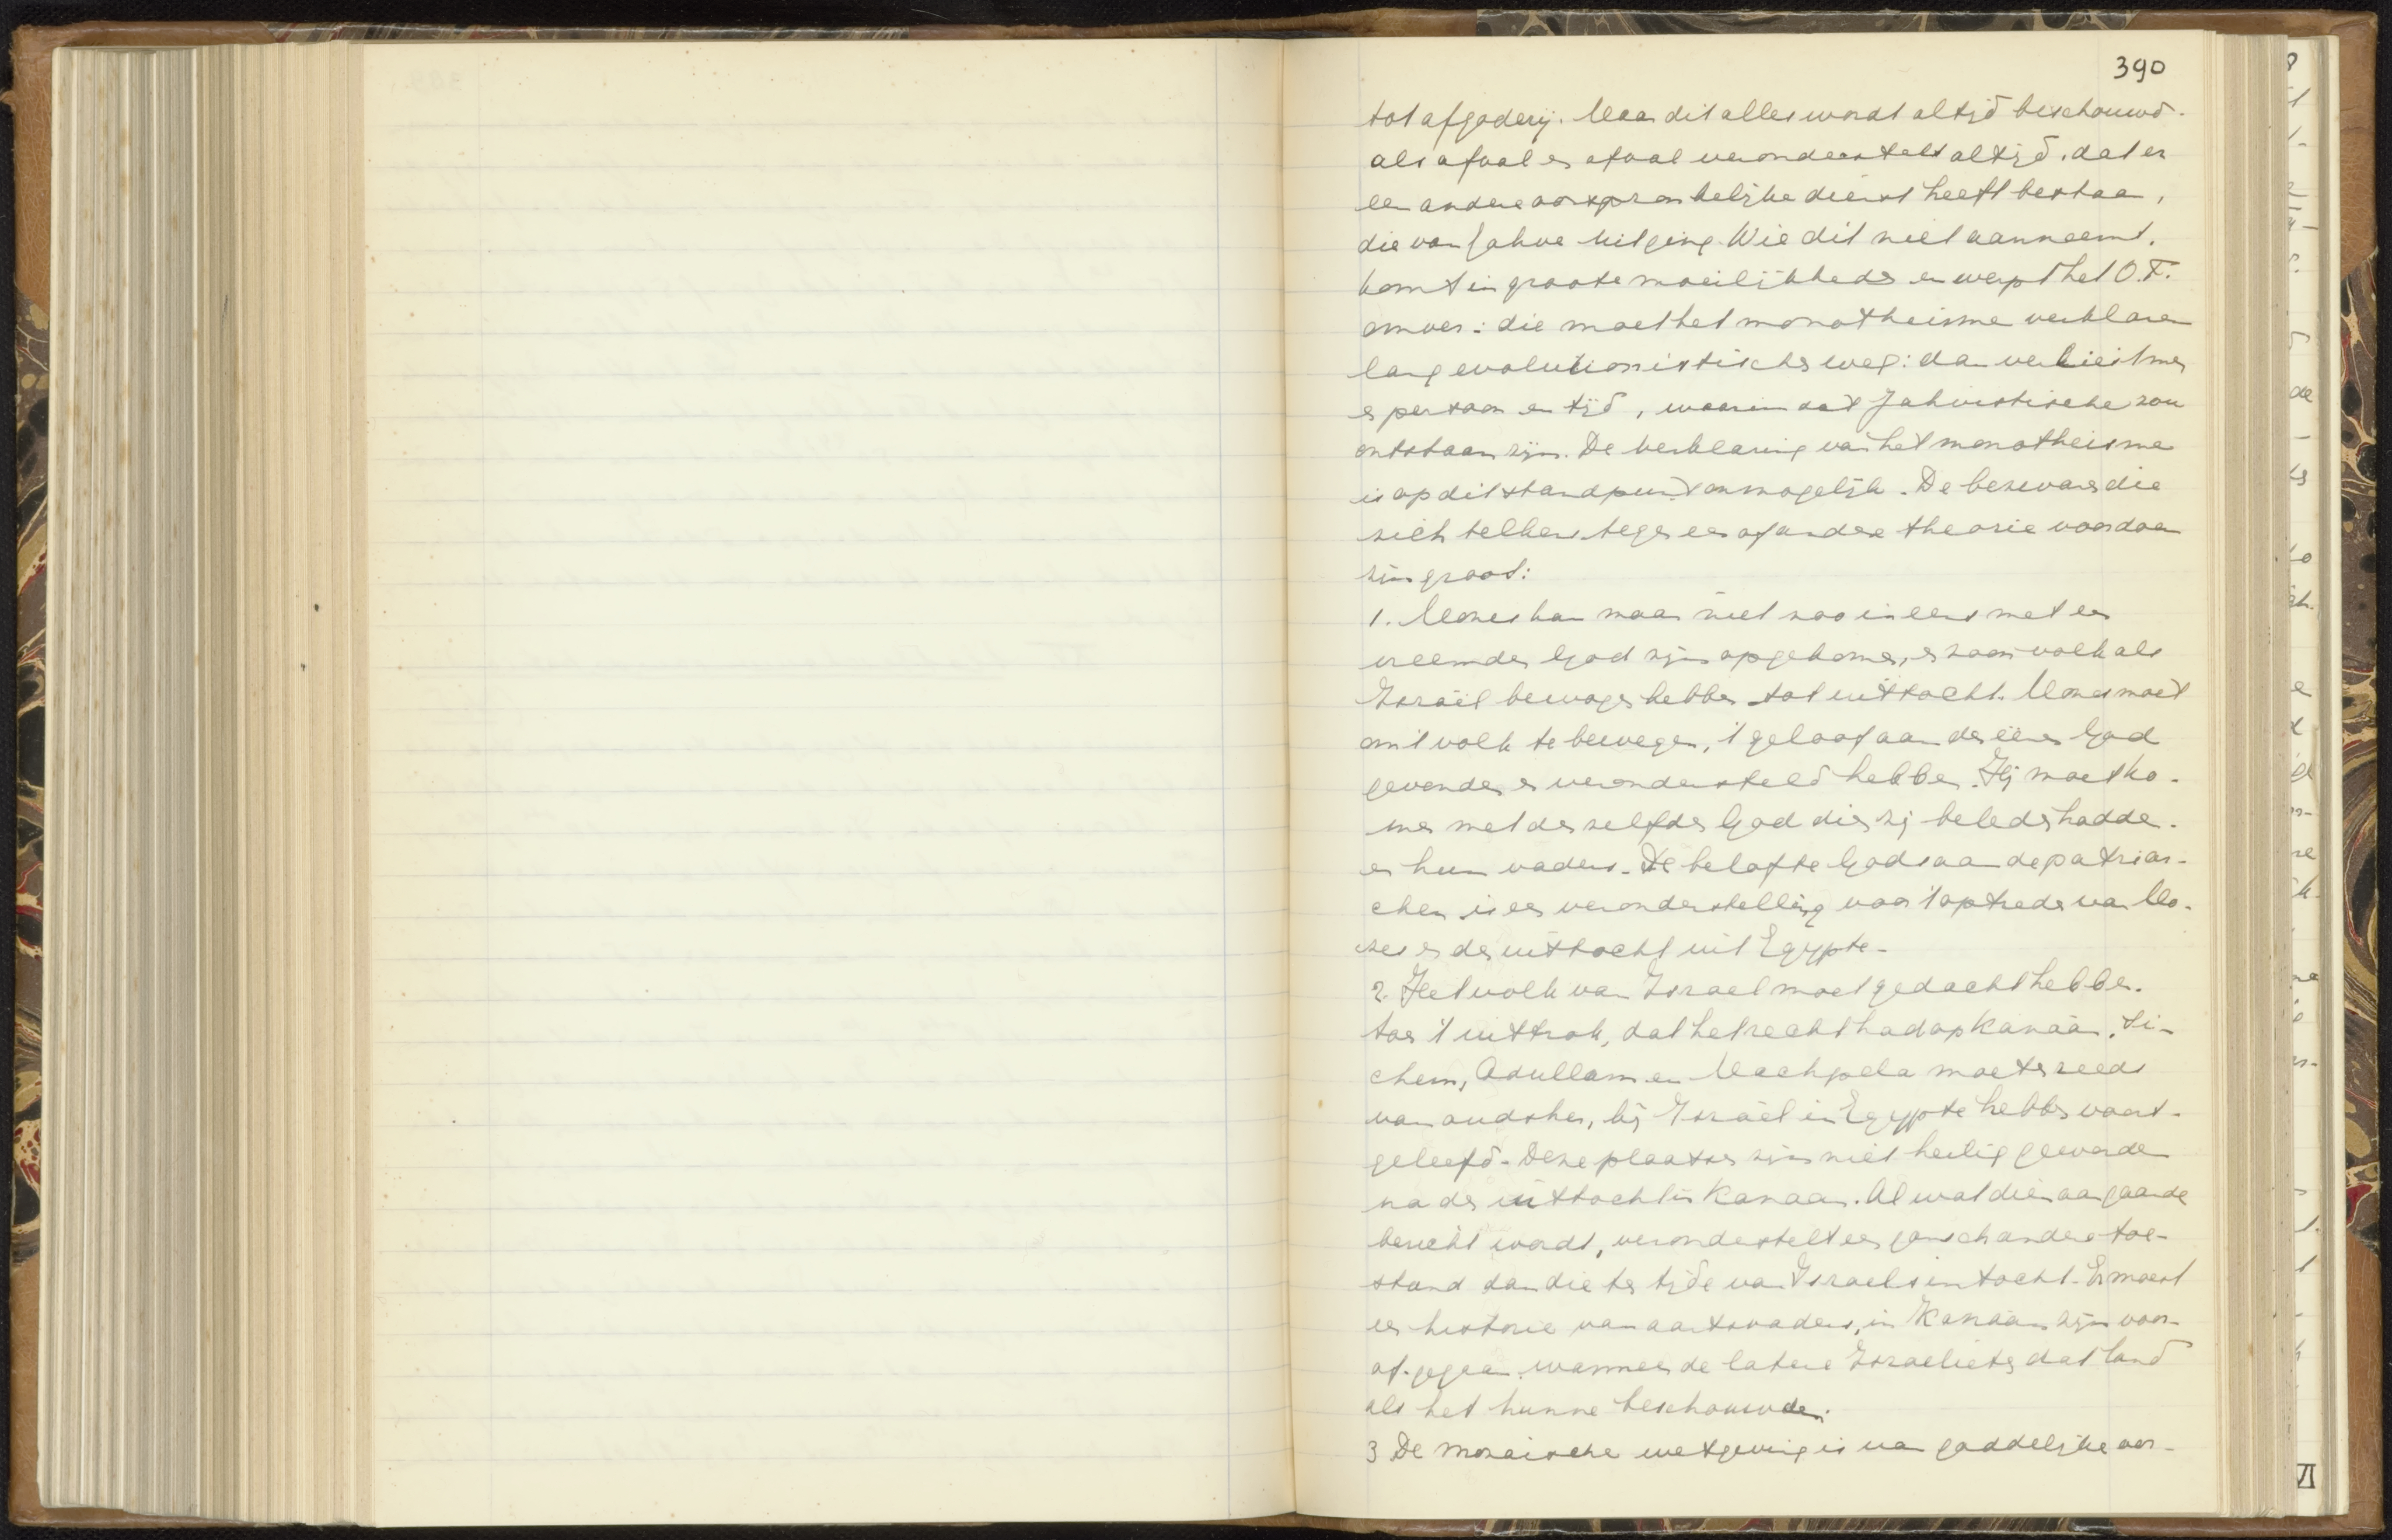 390
tot afgoderij. Maar dit alles wordt altijd beschouwd
als afval en afval veronderstelt altijd, dat er
een andere oorspronkelijke dienst heeft bestaan,
die van Jahve uitging. Wie dit niet aanneemt,
komt in groote moeilijkheden en werpt het O.T.
omver: die moet het monotheisme verklaren
langs evolutionistischen weg: dan verliest men
en persoon en tijd, waarin dat Jahvistische zou
ontstaan zijn. De verklaring van het monotheisme
is op dit standpunt onmogelijk. De bezwaren die
zich telkens tegen een of andere theorie voordoen
zijn groot:
1. Mozes kan maar niet zoo ineens met een
vreemden God zijn opgekomen, en zoon volk als
Israël bewogen hebben tot uittocht. Mozes moet
om 't volk te bewegen, 't geloof aan den éénen God
gevonden en verondersteld hebben. Hij moet ko-
men met denzelfden God dien zij beleden hadden
en hun vaders. De belofte Gods aan de patriar-
chen is een veronderstelling voor 't optreden van Mo-
zes en den uittocht uit Egypte.
2. Het volk van Israel moet gedacht hebben
toen 't uittrok, dat het recht had op Kanaän. Si-
chem, Adullam en Machpela moeten reeds
van oudsher, bij Israël in Egypte hebben voort-
geleefd. Deze plaatsen zijn niet heilig geworden
na den uittocht in Kanaan. Al wat dienaangaande
bericht wordt, veronderstelt een gansch andere toe-
stand dan die ten tijde van Israels intocht. Er moest
een historie van aartsvaders, in Kanaän zijn voor-
af-gegaan wanneer de latere Israelieten dat land
als het hunne beschouwden.
3 De mozaische wetgeving is van goddelijke oor-
VI